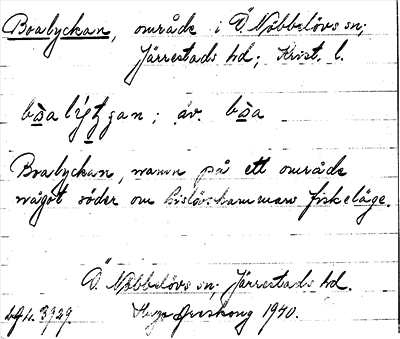 Boalyckan, område i Ö. Nöbbelövs sn;
Järrestads hd; Krist. l.
bòa lýtgan; äv. bòa
Boalyckan, namn på ett område
något söder om kislövshammars fiskeläge.
Ö. Nöbbelövs sn; Järrestads hd.
3929. Hugo 1940.